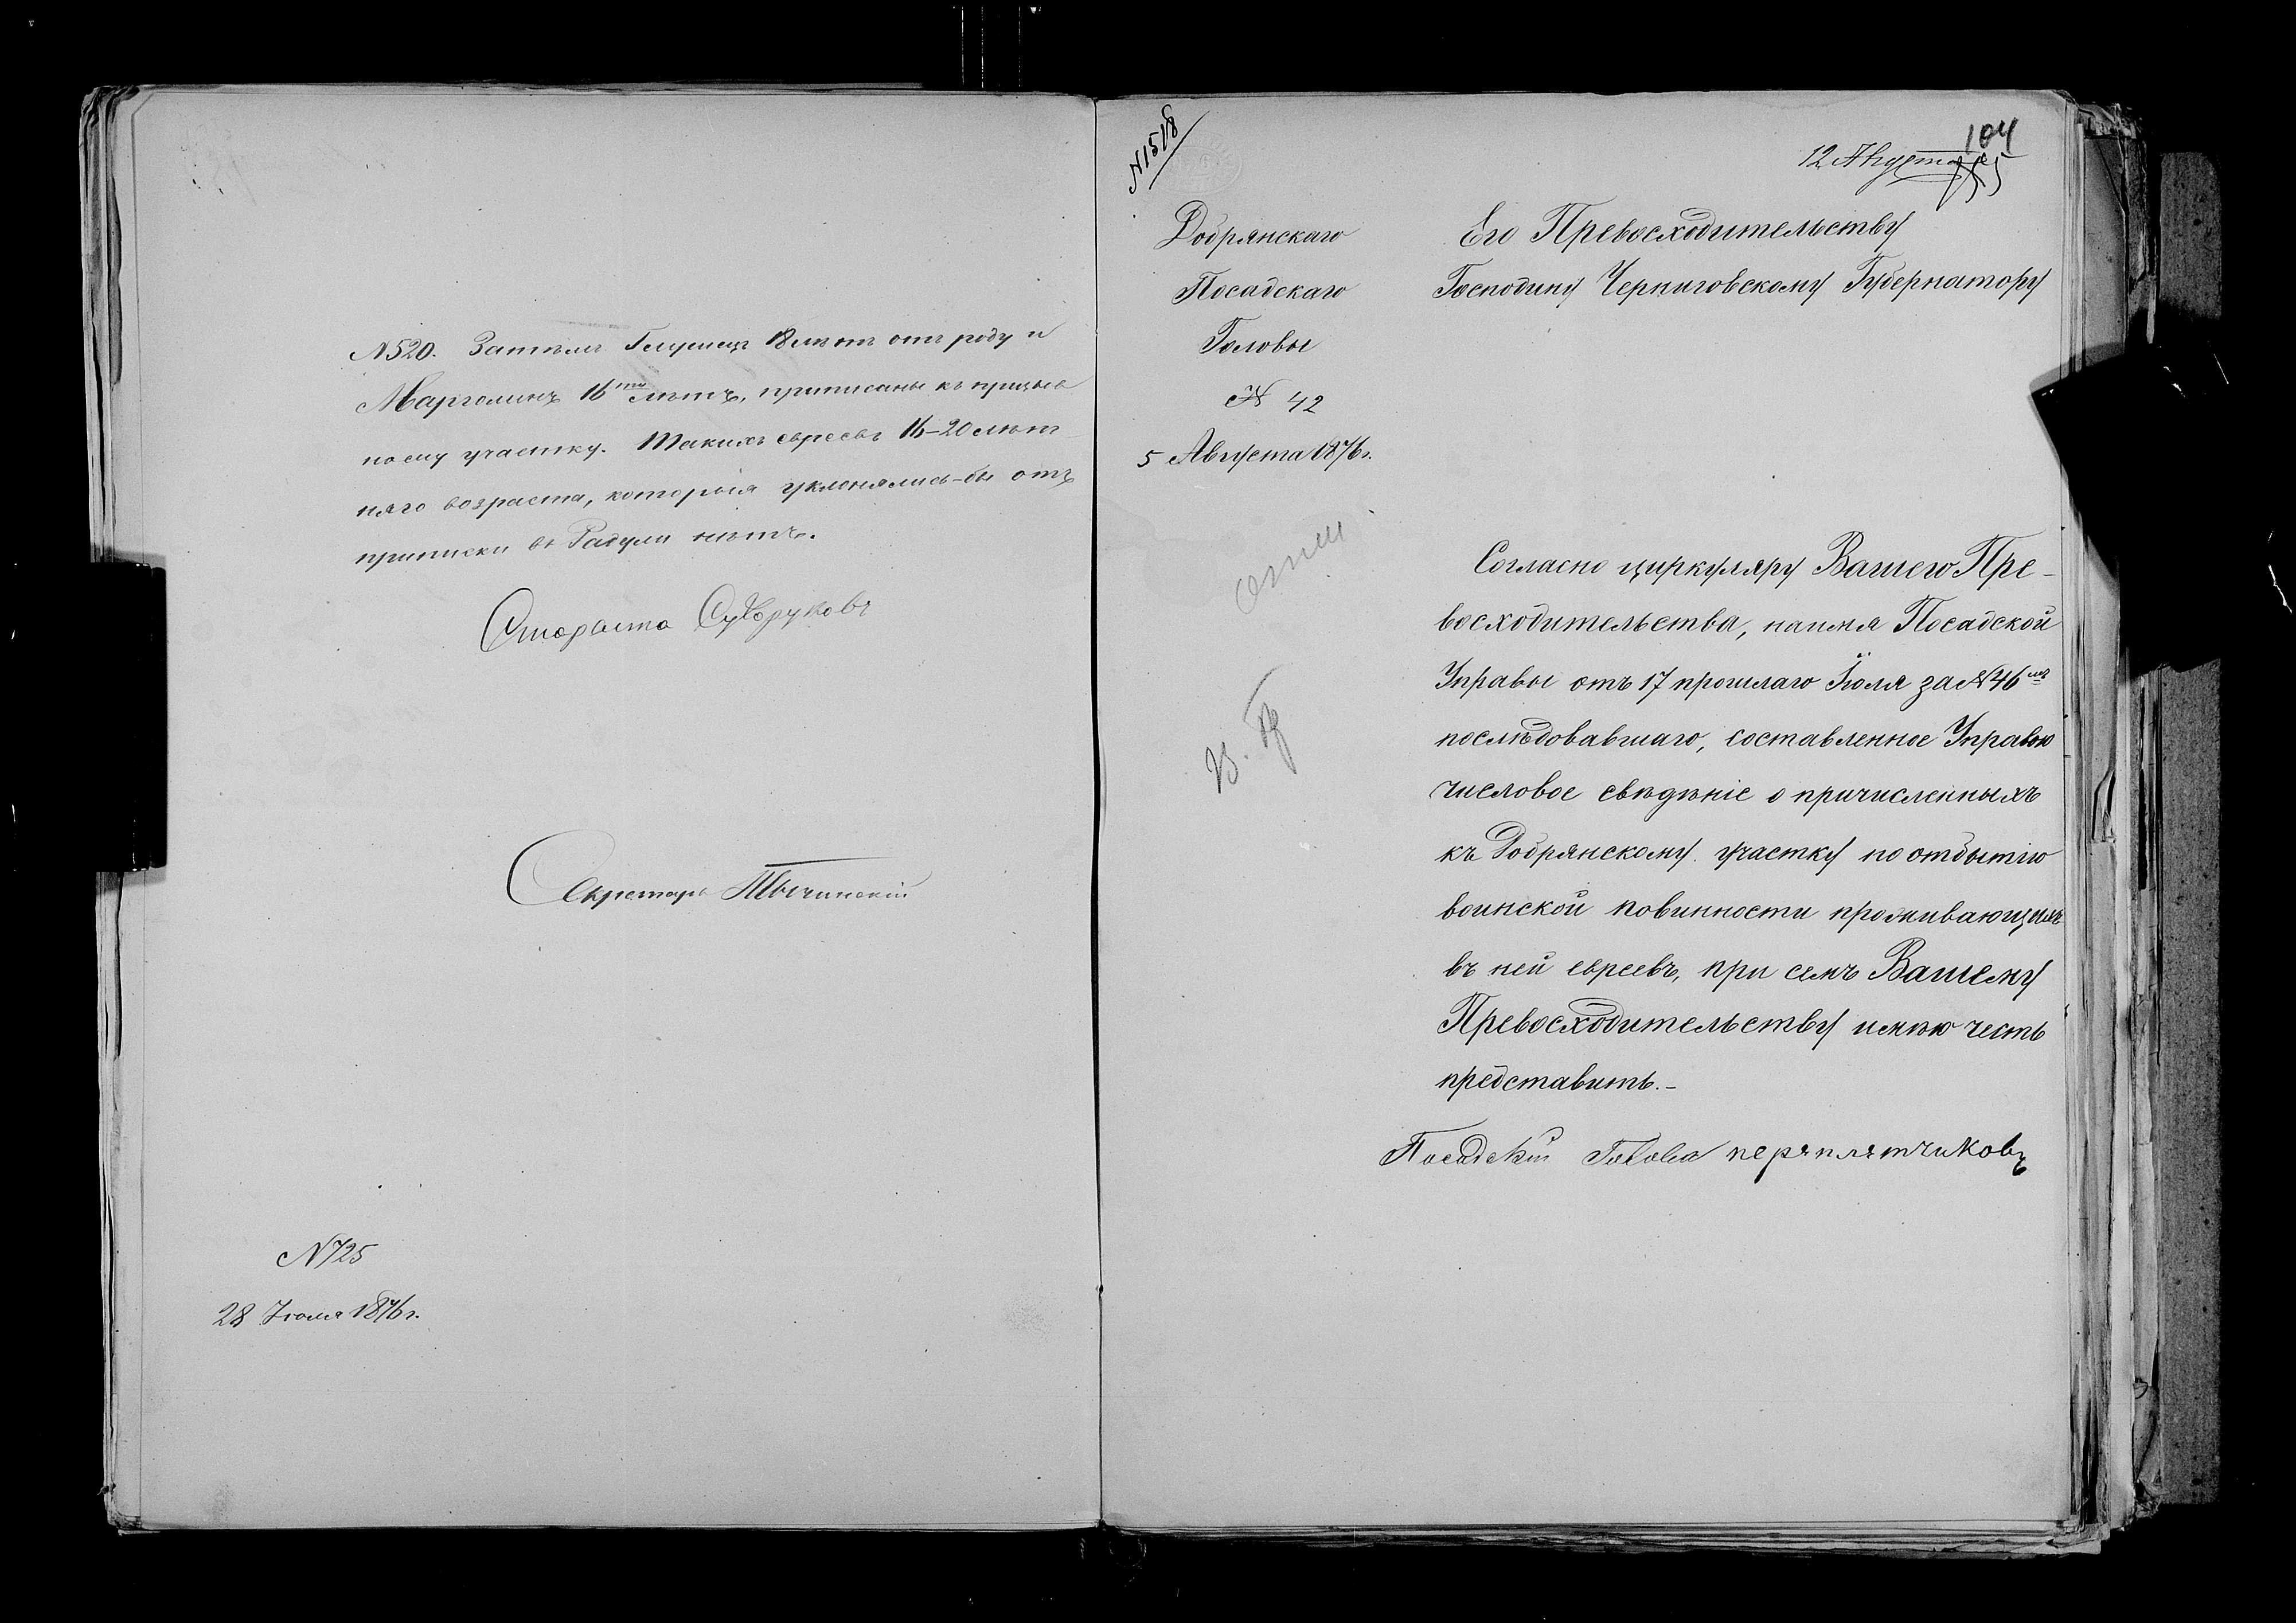 N 520. Затѣмъ Глушецъ 18 лѣтъ отъ роду и
Марголинъ 16ти лѣтъ, приписаны къ призыв
ному участку. Такихъ евреевъ 16–20 лѣт
няго возраста, которыя уклонялись-бы отъ
приписки въ Радули нѣтъ.
Староста Сухоруковъ
Секретарь Тычинскій
N 725
28 Іюля 1876 г.
N 1518
104
12 Августа
Добрянскаго
Посадскаго
Головы
N 42
5 Августа 1876 г.
Его Превосходительству
Господину Черниговскому Губернатору
Согласно циркуляру Вашего Пре-
восходительства, наимя Посадской
Управы отъ 17 прошлаго Іюля за N 46мъ
послѣдовавшаго, составленное Управою
числовое свѣдѣніе о причисленныхъ
къ Добрянскому участку по отбытію
воинской повинности проживающихъ
въ ней евреевъ, при семъ Вашему
Превосходительству имѣю честь
представить.-
Посадскій Голова перяплятчиковъ